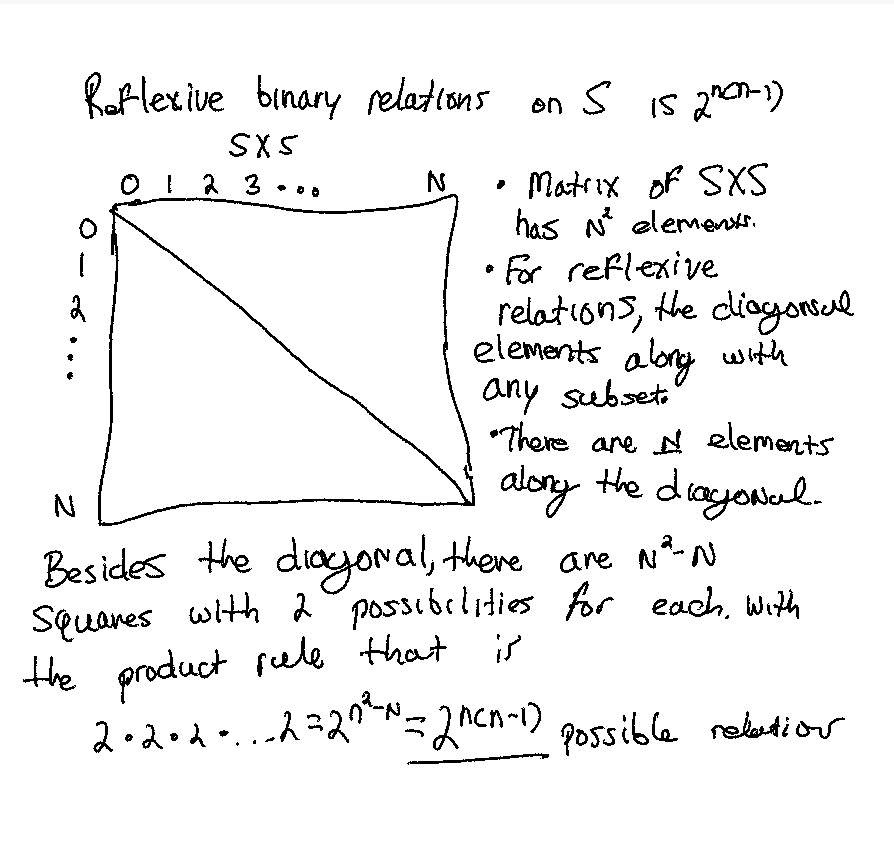 Reflexive binary relations on S is 2^n(n-1)
SXS
0 1 2 3 ... N
0
1
2
⋮
N
• Matrix of SXS
has N² elements.
• For reflexive
relations, the diagonal
elements along with
any subset.
• There are N elements
along the diagonal.
Besides the diagonal, there are N²-N
squares with 2 possibilities for each. With
the product rule that is
2·2·2·...2=2^n²-N=2^n(n-1) possible relation